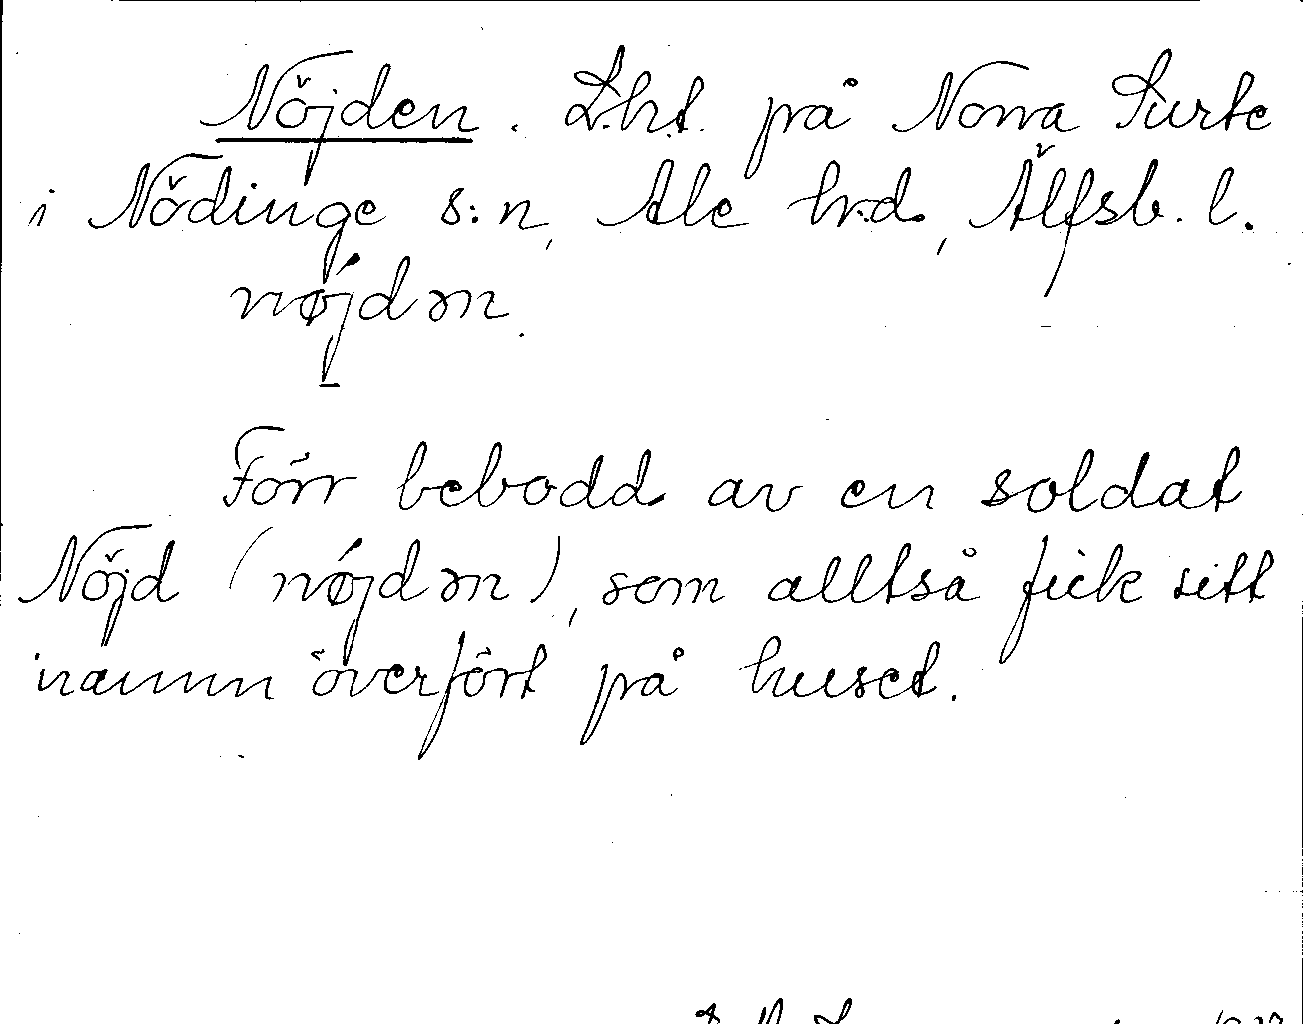 Nöjden. L.h.t. på Norra Surte
i Nödinge s:n, Ale h:d., Älfsb. l.
nøjdən.
Förr bebodd av en soldat
Nöjd (nøjdən), som alltså fick sitt
namn överfört på huset.